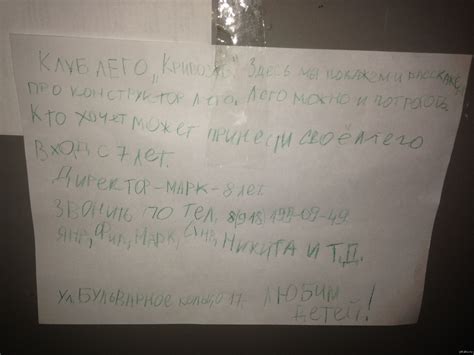 КЛУБ ЛЕГО „ Здесь мы покажем и расскаже
про конструктор лего. Лего можно и потрогать.
Кто хочет может принести своё лего
ВХОД С 7 ЛЕТ.
ДИРЕКТОР-МАРК-8 лет
ЗВОНИТЬ ПО ТЕЛ. 8918 199-09-49
ЯНА, ФИЛ, МАРК, НИКИТА И Т.Д.
УЛ БУЛЬВАРНОЕ КОЛЬЦО 17. ЛЮБИМ
ДЕТЕЙ!